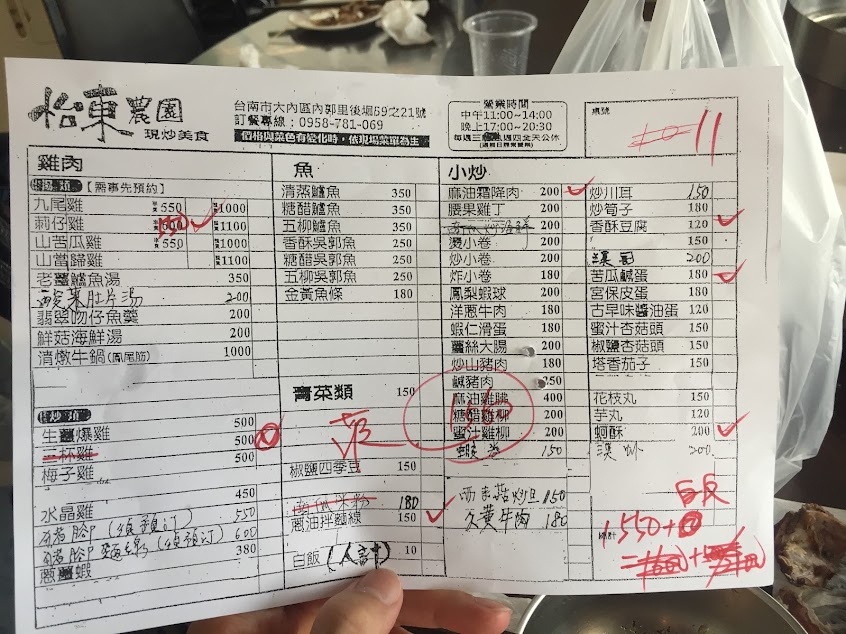 怡東農園
現炒美食
台南市大內區內郭里後堀69之21號
訂餐專線：0958-781-069
價格與菜色有變化時，依現場菜單為主
營業時間
中午11:00~14:00
晚上17:00~20:30
桌號
11
雞肉
【需事先預約】
九尾雞 550 1000
莿仔雞 1100
山苦瓜雞 550 1000
山當歸雞 1100
老薑鱸魚湯 350
肚片湯 200
翡翠吻仔魚羹 200
鮮菇海鮮湯 200
清燉牛鍋(鳳尾筋) 1000
生薑爆雞 500
三杯雞 500
梅子雞 500
水晶雞 450
豬腳(須預訂) 550
豬腳麵線(須預訂) 600
蔥薑蝦 380
魚
清蒸鱸魚 350
糖醋鱸魚 350
五柳鱸魚 350
香酥吳郭魚 250
糖醋吳郭魚 250
五柳吳郭魚 250
金黃魚條 180
青菜類 150
椒鹽四季豆 150
南瓜米粉 180
蔥油拌麵線 150
白飯(人計) 10
小炒
麻油霜降肉 200
腰果雞丁 200
200
燙小卷 200
炒小卷 200
炸小卷 180
鳳梨蝦球 200
洋蔥牛肉 180
蝦仁滑蛋 180
薑絲大腸 200
炒山豬肉 180
鹹豬肉 250
麻油雞腿 400
糖醋雞柳 200
蜜汁雞柳 200
150
150
牛肉 180
炒川耳 150
炒筍子 180
香酥豆腐 120
150
200
苦瓜鹹蛋 180
宮保皮蛋 180
古早味醬油蛋 120
蜜汁杏菇頭 150
椒鹽杏菇頭 150
塔香茄子 150
花枝丸 150
芋丸 120
蚵酥 200
200
白飯
1550+